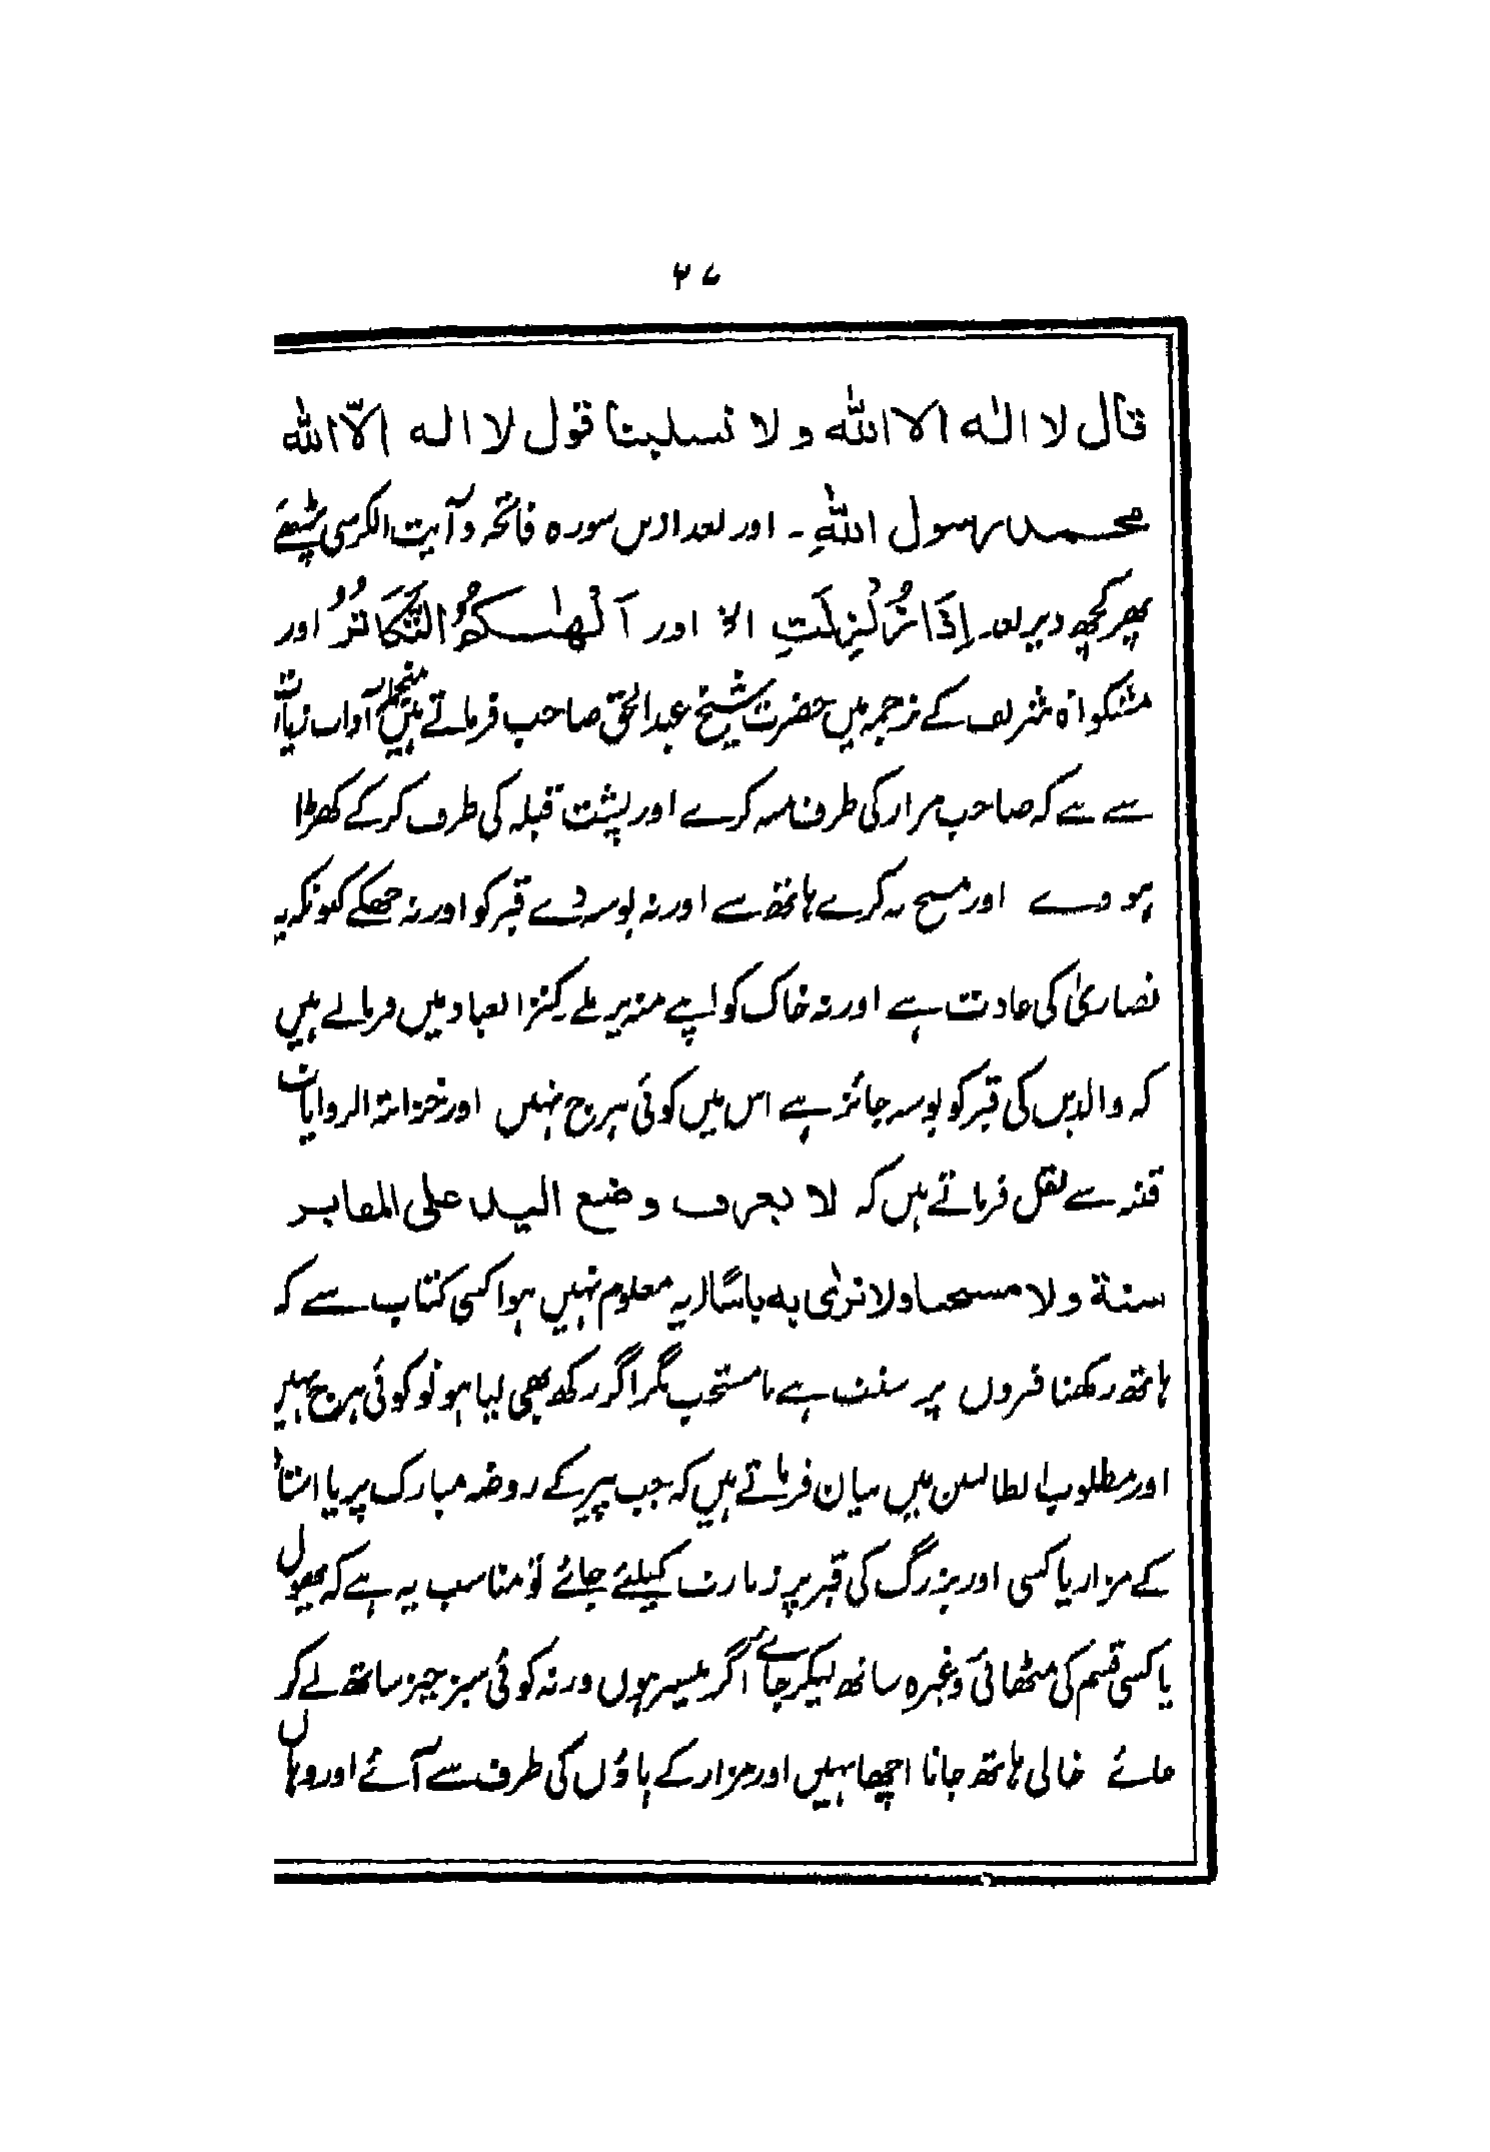 ۲۷
قال لا اله الا الله و لا تسلبنا قول لا اله الّا الله
محمد رسول اللهِ۔ اور بعد ازیں سورہ فاتحہ و آیت الکرسی پڑھے
پھر کچھ دیر بعد۔ اِذَا زُلْزِلَتِ الخ اور اَلْهٰىكُمُ التَّكَاثُرُ اور
مشکواۃ شریف کے ترجمہ میں حضرت شیخ عبدالحق صاحب فرماتے ہیں منجملہ آداب زیارت
سے ہے کہ صاحب مزار کی طرف منہ کرے اور پشت قبلہ کی طرف کر کے کھڑا
ہووے اور مسح نہ کرے ہاتھ سے اور نہ بوسہ دے قبر کو اور نہ جھکے کیونکہ یہ
نصاریٰ کی عادت ہے اور نہ خاک کو اپنے منہ پر ملے کنز العباد میں فرماتے ہیں
کہ والدین کی قبر کو بوسہ جائز ہے اس میں کوئی ہرج نہیں اور خزانۃ الروایات
قنیہ سے نقل فرماتے ہیں کہ لا یعرف وضع الید علی المقابر
سنة ولا مستحبا ولا نرٰی به باسًا اور یہ معلوم نہیں ہوا کسی کتاب سے کہ
ہاتھ رکھنا قبروں پر سنت ہے یا مستحب مگر اگر رکھ بھی لیا ہو تو کوئی ہرج نہیں
اور مطلوب الطالبین میں بیان فرماتے ہیں کہ جب پیر کے روضہ مبارک پر یا استاد
کے مزار یا کسی اور بزرگ کی قبر پر زیارت کیلئے جائے تو مناسب یہ ہے کہ پھول
یا کسی قسم کی مٹھائی وغیرہ ساتھ لیکر جائے اگر میسر ہوں ورنہ کوئی سبز چیز ساتھ لے کر
جائے خالی ہاتھ جانا اچھا نہیں اور مزار کے پاؤں کی طرف سے آئے اور وہاں